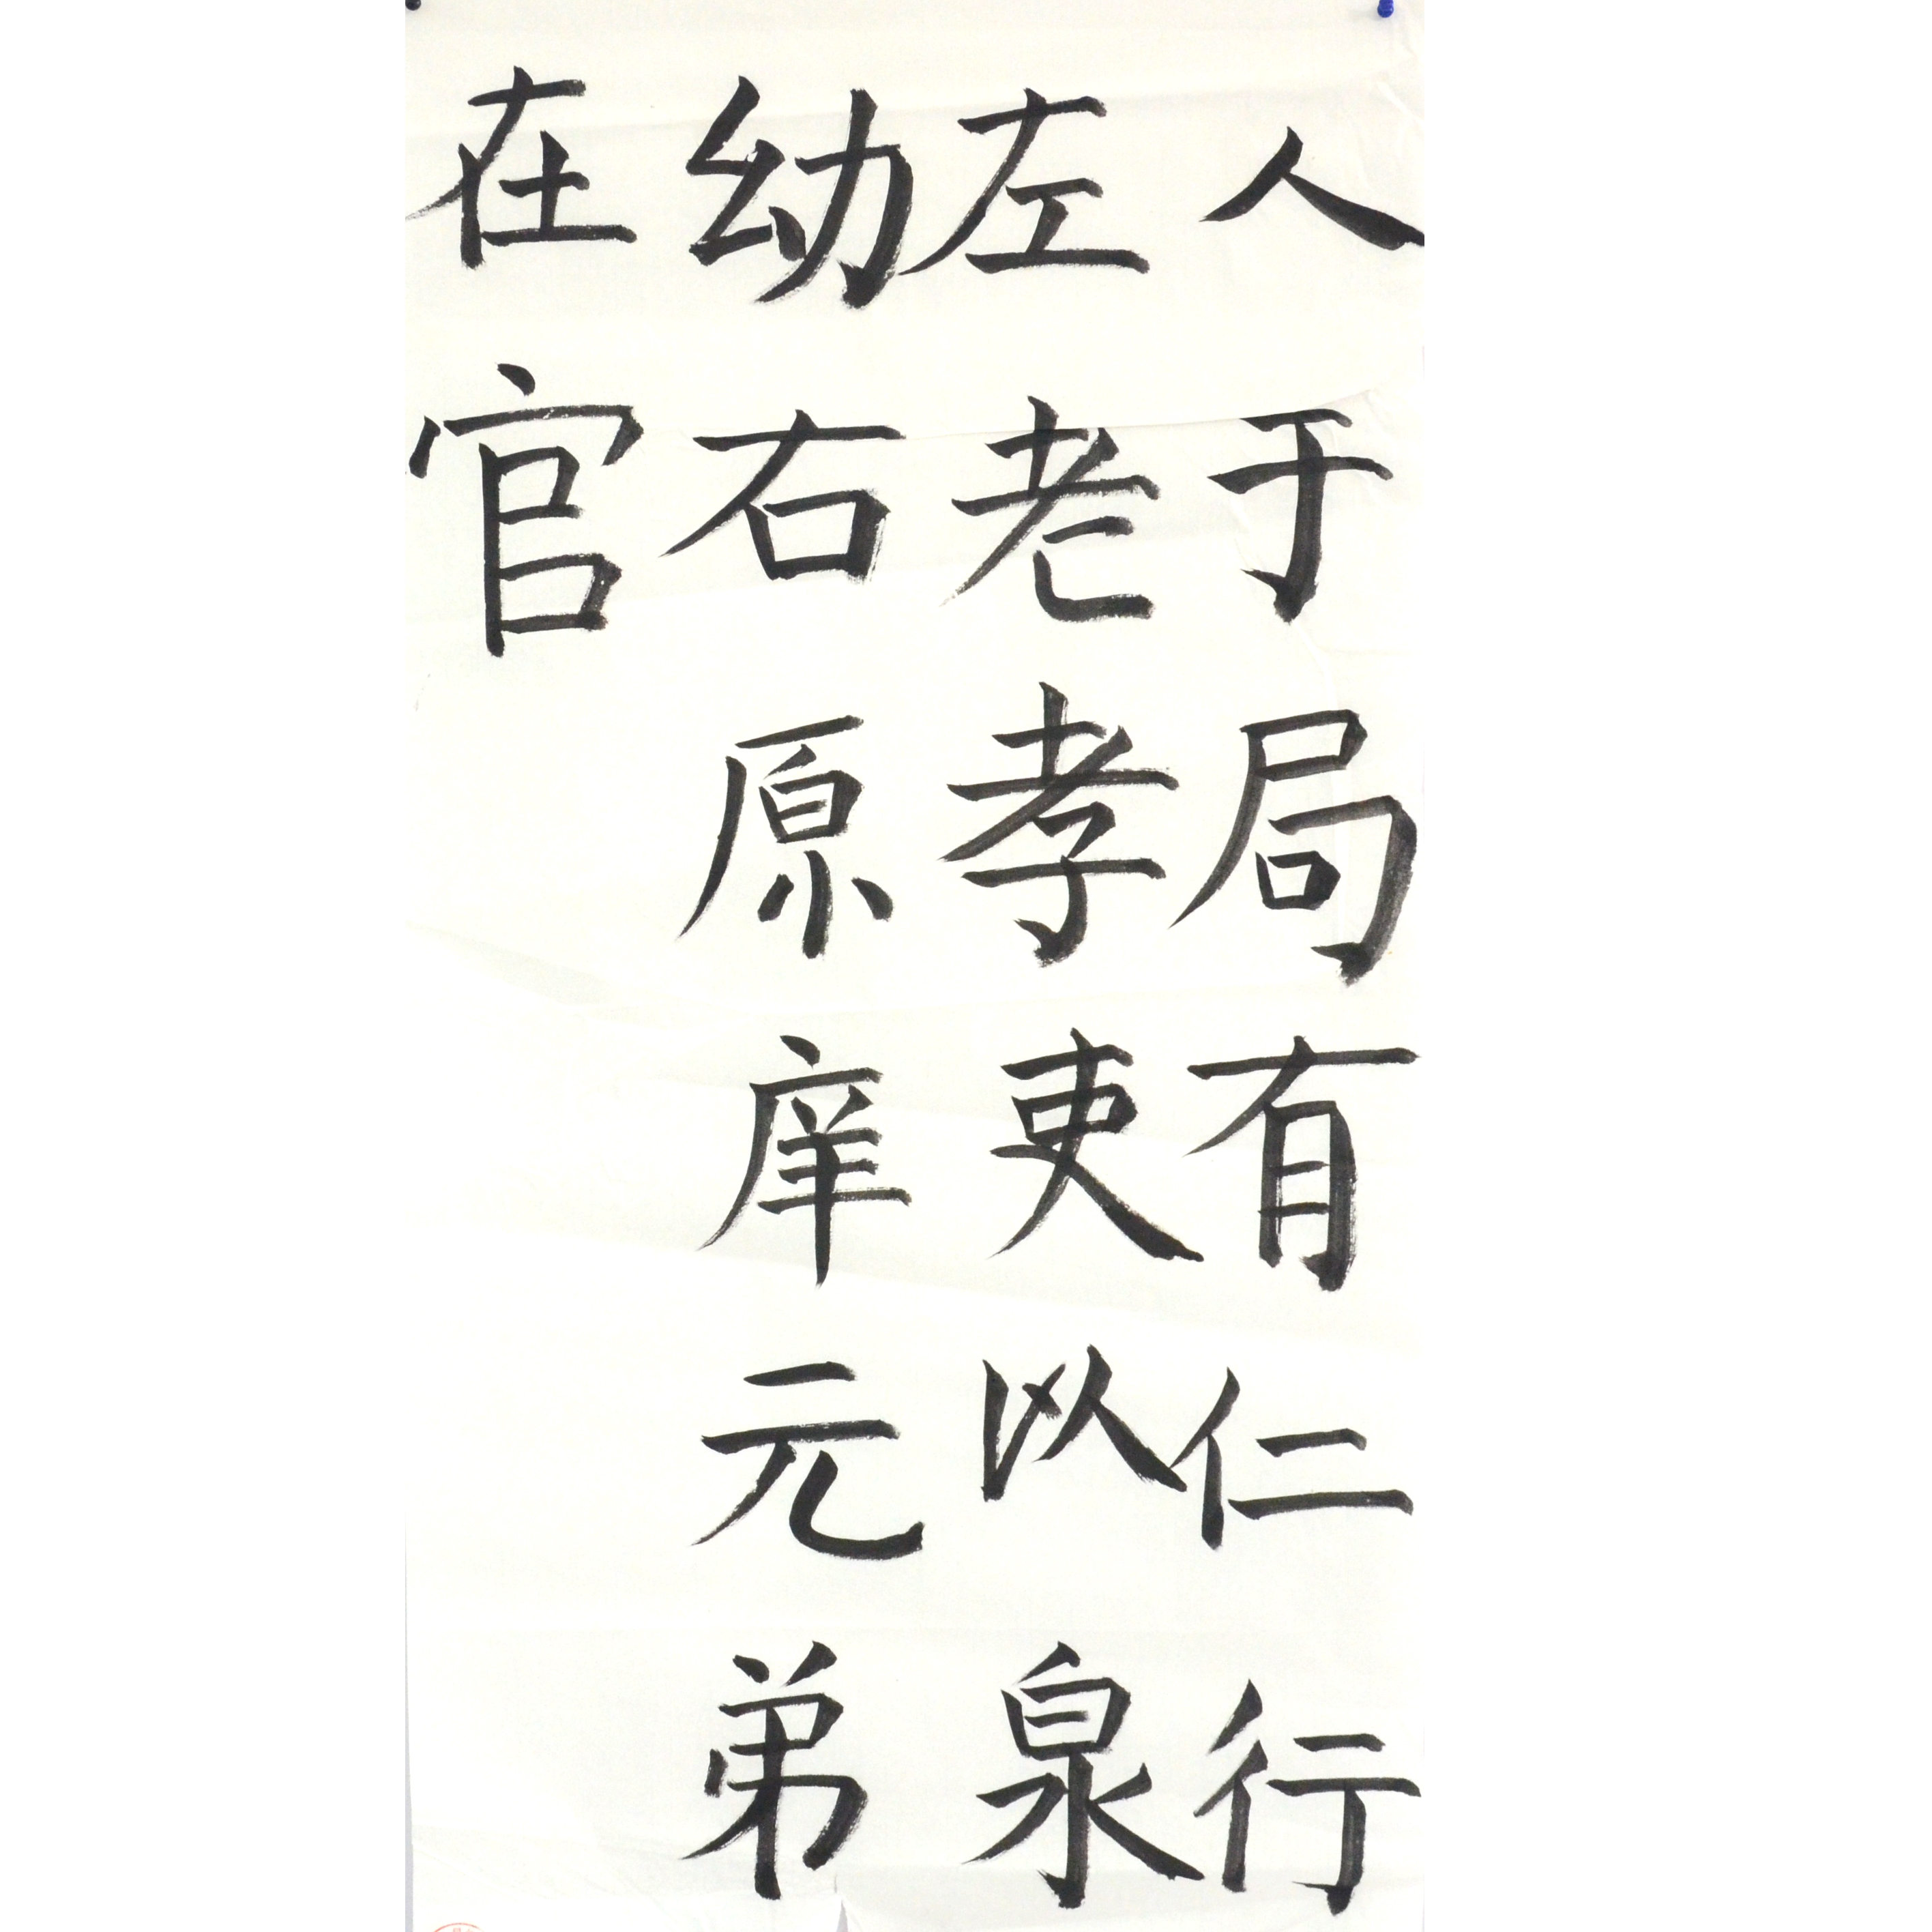 人于局有仁行
左老孝吏以泉
幼右原庠元弟
在官